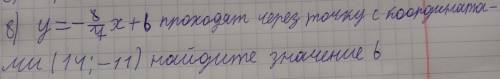 8) y = -8/7 x + b проходят через точку с координата-
ми (14; -11) найдите значение b